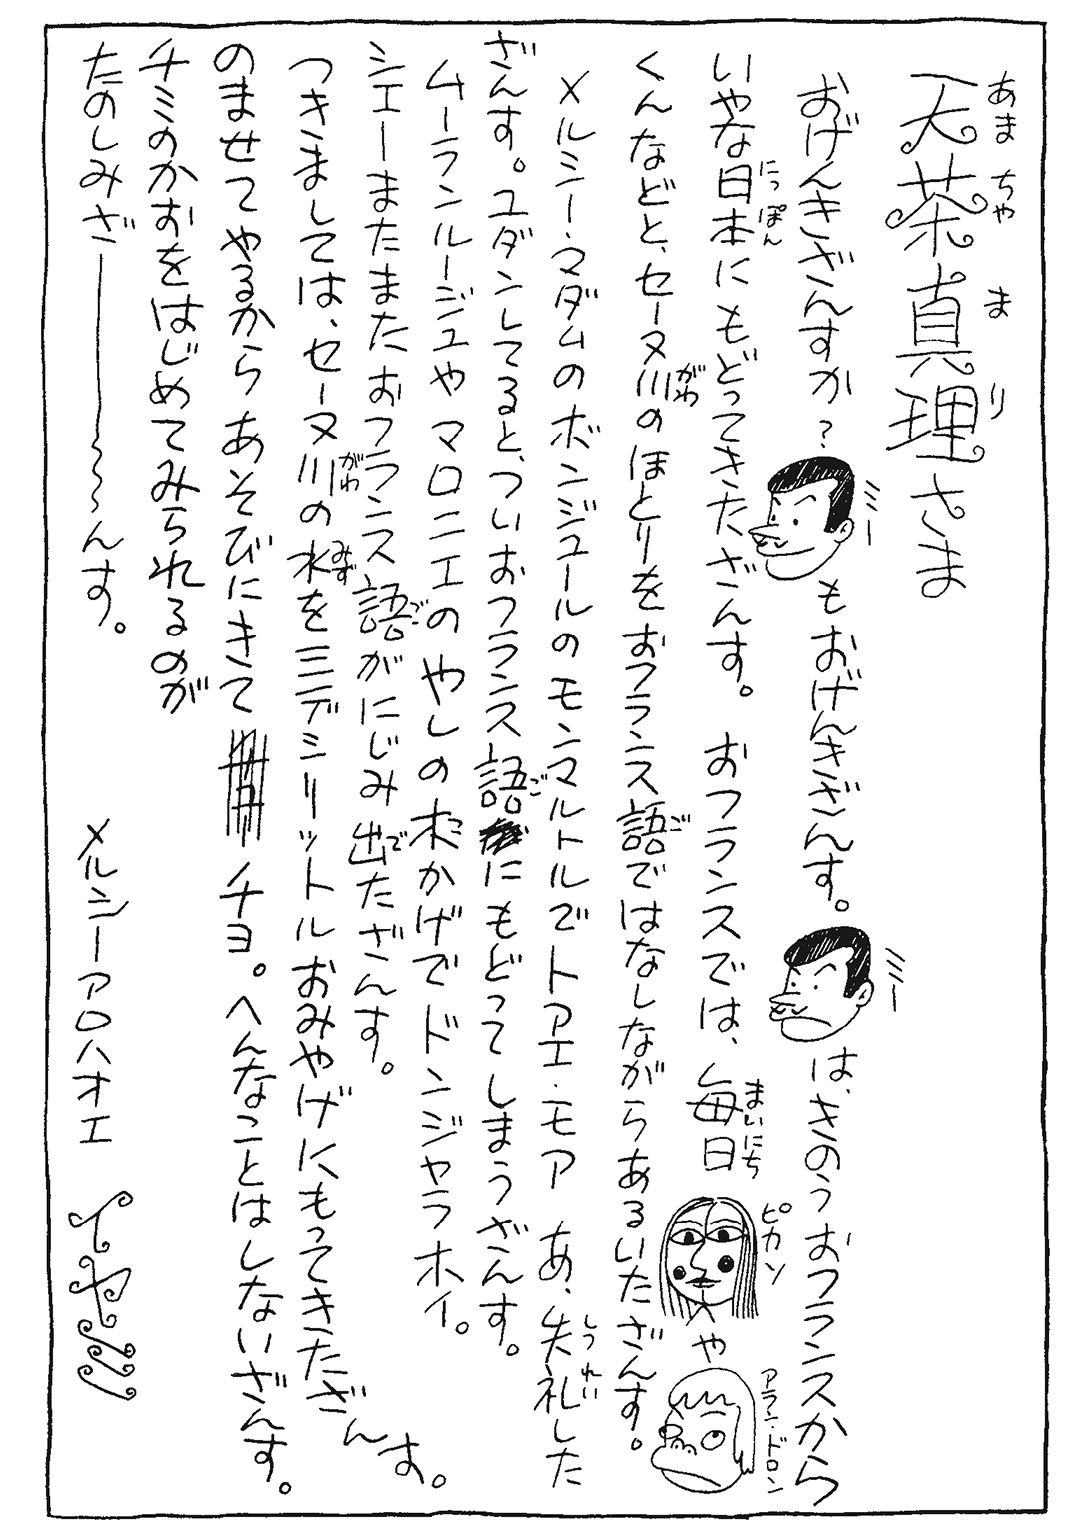 天茶真理さま
おげんきざんすか？もおげんきざんす。は、きのうおフランスから
いやな日本にもどってきたざんす。おフランスでは、毎日へや
くんなどと、セーヌ川のほとりをおフランス語ではなしながらあるいたざんす。
メルシー・マダムのボンジュールのモンマルトルでトアエ・モア あ、失礼した
ざんす。ユダンしてると、ついおフランス語にもどってしまうざんす。
ムーランルージュやマロニエの やしの木かげでドンジャラホイ。
シェーまたまたおフランス語がにじみ出たざんす。
つきましては、セーヌ川の水を三デシリットルおみやげにもってきたざんす。
のませてやるからあそびにきてチョ。へんなことはしないざんす。
チミのかおをはじめてみられるのが
たのしみざ――〜〜〜んす。
メルシーアロハオエ
トヤミ
あまちゃまり
にっぽん
まいにち
ピカソ
アラン・ドロン
がわ
ご
しつれい
ご
ご
で
がわ
みず